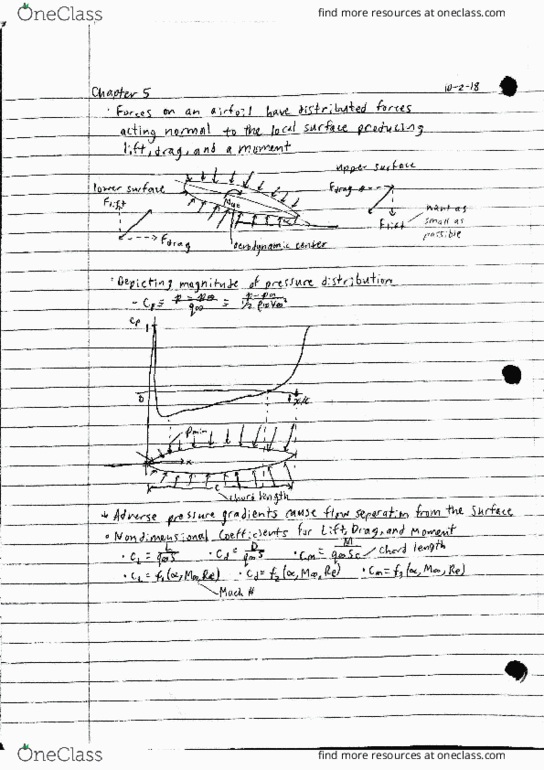 OneClass
find more resources at oneclass.com
Chapter 5
10-2-18
· Forces on an airfoil have distributed forces
acting normal to the local surface producing
lift, drag, and a moment
upper surface
lower surface
Fdrag
Flift
Flift
want as
small as
possible
Fdrag
aerodynamic center
· Depicting magnitude of pressure distribution
- Cp ≡ p - p∞ / q∞ = p - p∞ / 1/2 ρ∞ V∞²
Cp
1
0
1 x/c
pmin
x
c
chord length
Adverse pressure gradients cause flow separation from the surface
• Nondimensional Coefficients for Lift, Drag, and Moment
· CL = L / q∞S · Cd = D / q∞S · Cm = M / q∞Sc chord length
· CL = f1(α, M∞, Re) · Cd = f2(α, M∞, Re) · Cm = f3(α, M∞, Re)
Mach #
OneClass
find more resources at oneclass.com